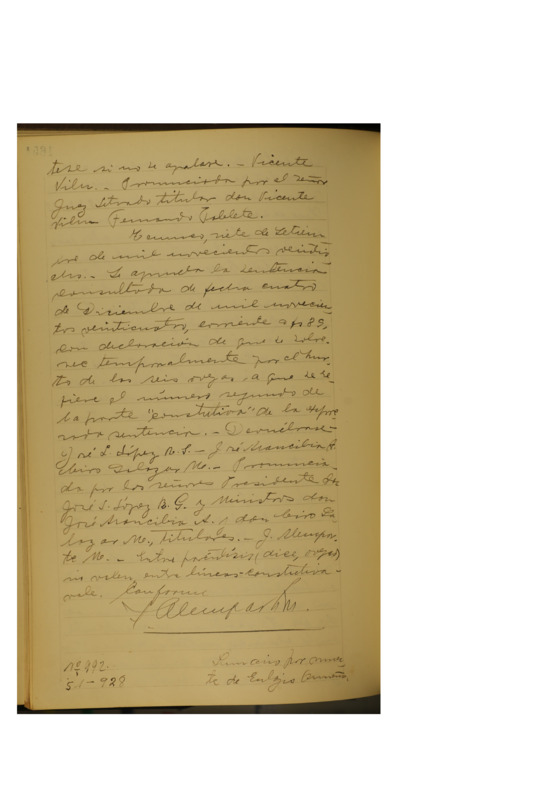 tese si no se apelare. - Vicente
Vilu. - Pronunciada por el señor
Juez Letrado titular don Vicente
Vilu Fernando Poblete.
Temuco, siete de Setiem
bre de mil novecientos veinti
ocho. - Se aprueba la sentencia
consultada de fecha cuatro
de Diciembre de mil novecien-
tos veinticuatro, corriente a fs 89,
con declaración de que se sobre-
see temporalmente por el hur-
to de las seis ovejas a que se re-
fiere el número segundo de
la parte "constitutiva" de la expre
sada sentencia. - Devuélvase -
José L. López B. G. - José Arancibia A.
Ciro Salazar M. - Pronuncia-
da por los señores Presidente don
José L. López B. G. y Ministros don
José Arancibia A. y don Ciro Sa-
lazar M., titulares. - J. Alempar-
te M. - Entre paréntesis (diez ovejas)
no valen, entre líneas - constitutiva -
vale. Conforme
JAlemparte M.
Nº 492.
5-1-928
Sumario por muer-
te de Eulojio